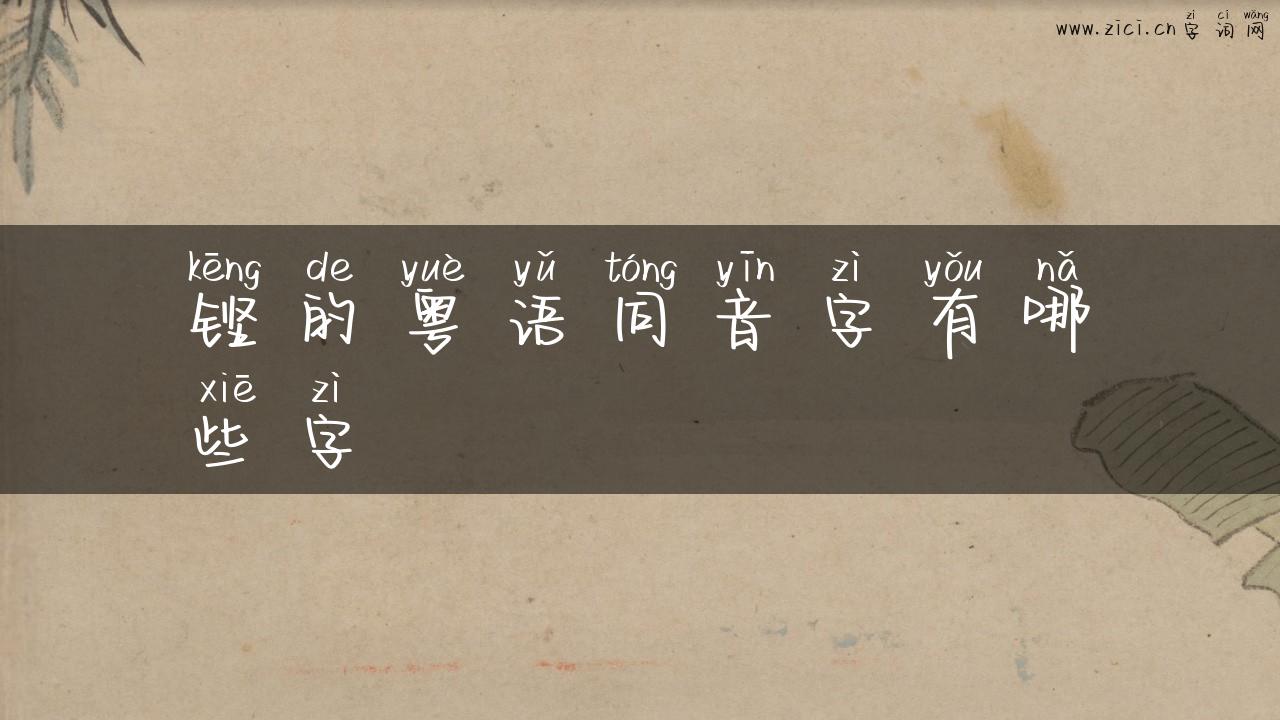 zì cí wǎng
www.zici.cn 字词网
kēng de yuè yǔ tóng yīn zì yǒu nǎ
铿的粤语同音字有哪
xiē zì
些字